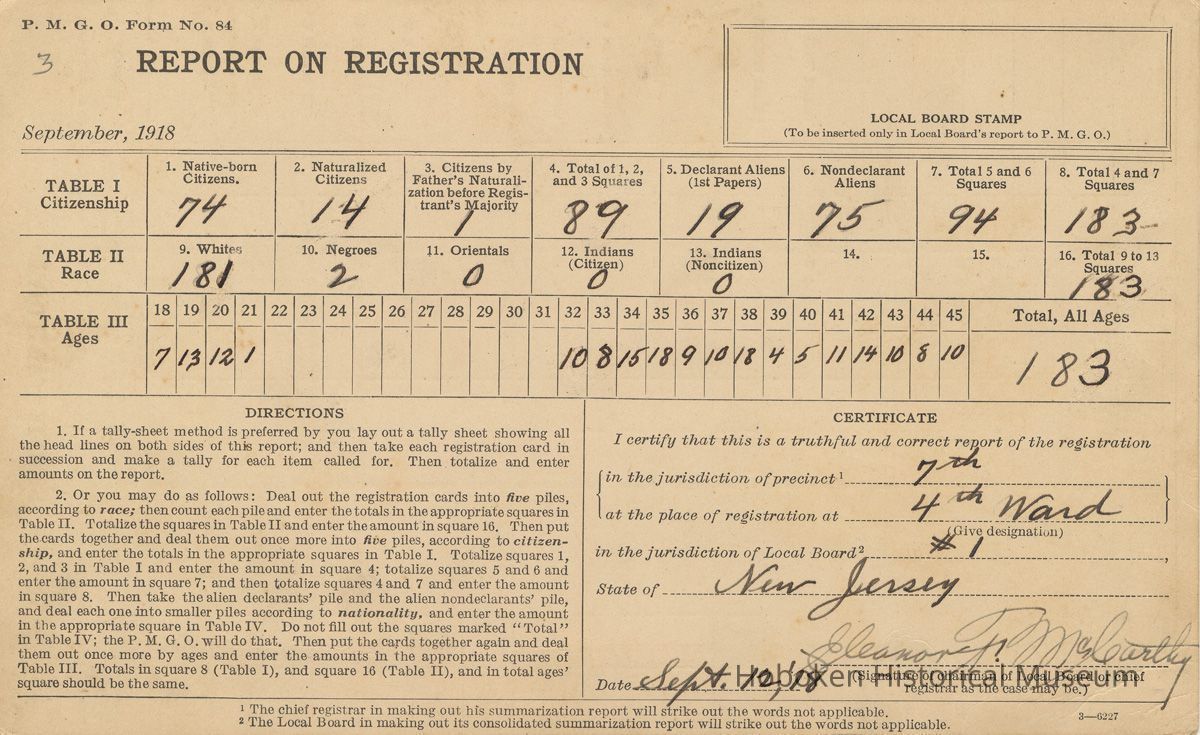 P. M. G. O. Form No. 84
3
REPORT ON REGISTRATION
September, 1918
LOCAL BOARD STAMP
(To be inserted only in Local Board's report to P. M. G. O.)
TABLE I
Citizenship
1. Native-born
Citizens.
74
2. Naturalized
Citizens
14
3. Citizens by
Father's Naturali-
zation before Regis-
trant's Majority
1
4. Total of 1, 2,
and 3 Squares
89
5. Declarant Aliens
(1st Papers)
19
6. Nondeclarant
Aliens
75
7. Total 5 and 6
Squares
94
8. Total 4 and 7
Squares
183
TABLE II
Race
9. Whites
181
10. Negroes
2
11. Orientals
0
12. Indians
(Citizen)
0
13. Indians
(Noncitizen)
0
14.
15.
16. Total 9 to 13
Squares
183
TABLE III
Ages
18 19 20 21 22 23 24 25 26 27 28 29 30 31 32 33 34 35 36 37 38 39 40 41 42 43 44 45 Total, All Ages
7 13 12 1 10 8 15 18 9 10 18 4 5 11 14 10 8 10 183
DIRECTIONS
1. If a tally-sheet method is preferred by you lay out a tally sheet showing all
the head lines on both sides of this report; and then take each registration card in
succession and make a tally for each item called for. Then totalize and enter
amounts on the report.
2. Or you may do as follows: Deal out the registration cards into five piles,
according to race; then count each pile and enter the totals in the appropriate squares in
Table II. Totalize the squares in Table II and enter the amount in square 16. Then put
the cards together and deal them out once more into five piles, according to citizen-
ship, and enter the totals in the appropriate squares in Table I. Totalize squares 1,
2, and 3 in Table I and enter the amount in square 4; totalize squares 5 and 6 and
enter the amount in square 7; and then totalize squares 4 and 7 and enter the amount
in square 8. Then take the alien declarants' pile and the alien nondeclarants' pile,
and deal each one into smaller piles according to nationality, and enter the amount
in the appropriate square in Table IV. Do not fill out the squares marked "Total"
in Table IV; the P. M. G. O. will do that. Then put the cards together again and deal
them out once more by ages and enter the amounts in the appropriate squares of
Table III. Totals in square 8 (Table I), and square 16 (Table II), and in total ages'
square should be the same.
CERTIFICATE
I certify that this is a truthful and correct report of the registration
in the jurisdiction of precinct¹ 7th
at the place of registration at 4th Ward
(Give designation)
in the jurisdiction of Local Board² #1,
State of New Jersey
Eleanor Y. McCarthy
Date Sept. 12, '18
(Signature of chairman of Local Board or chief
registrar as the case may be.)
Hoboken Historical Museum
¹ The chief registrar in making out his summarization report will strike out the words not applicable.
² The Local Board in making out its consolidated summarization report will strike out the words not applicable.
3—6227